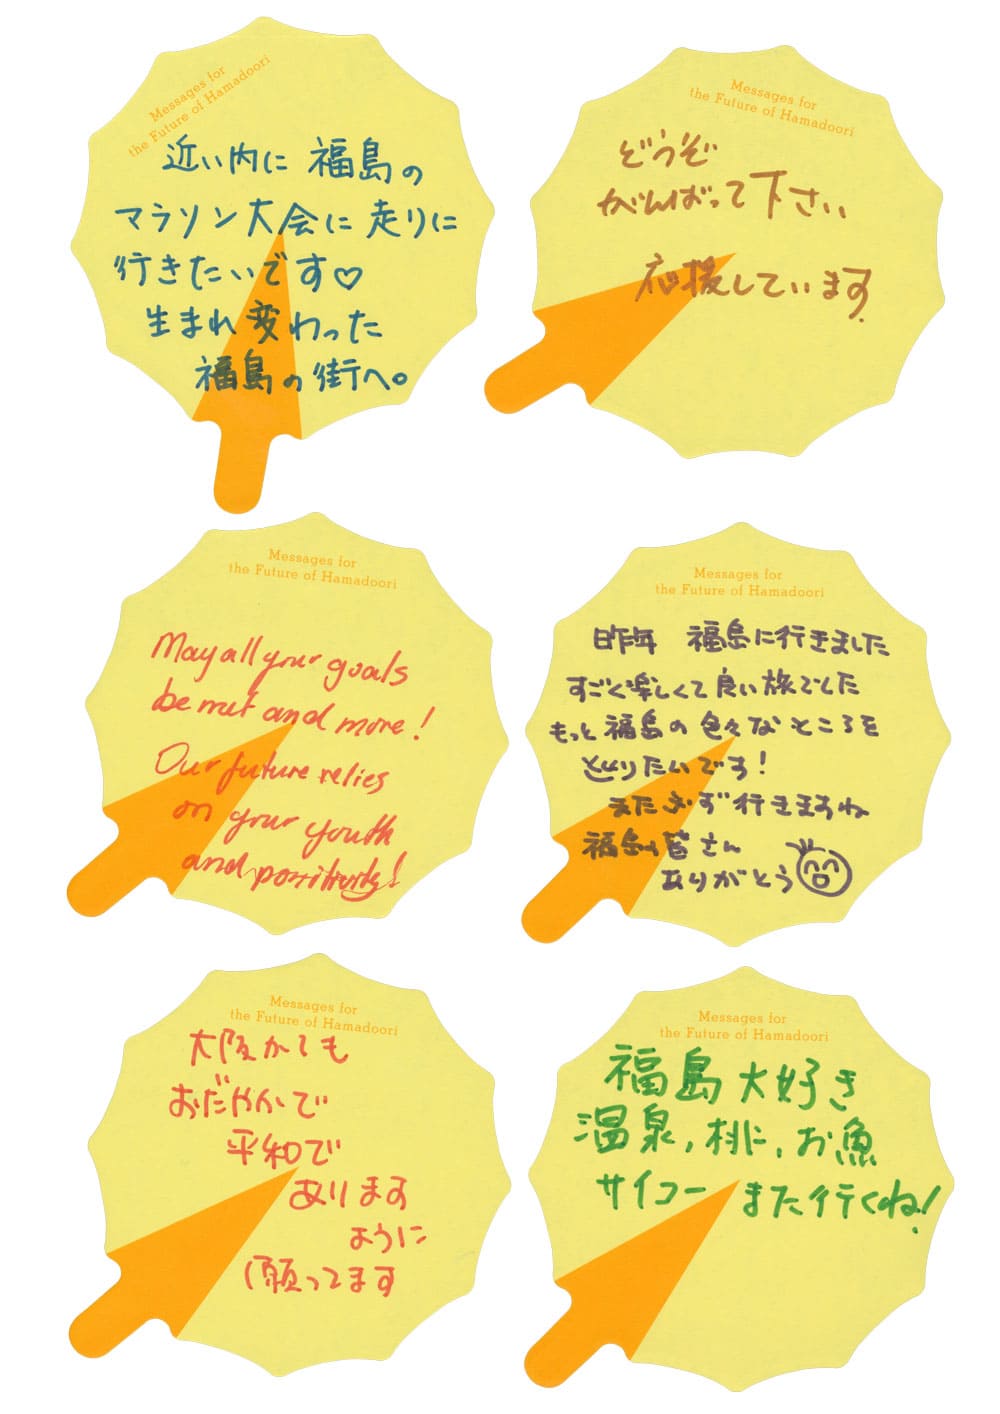 Messages for
the Future of Hamadoori
近い内に 福島の
マラソン大会に走りに
行きたいです♡
生まれ変わった
福島の街へ。
Messages for
the Future of Hamadoori
どうぞ
がんばって下さい
応援しています.
Messages for
the Future of Hamadoori
May all your goals
be met and more!
Our future relies
on your youth
and positivity!
Messages for
the Future of Hamadoori
昨年 福島に行きました
すごく楽しくて良い旅でした
もっと福島の色々なところを
知りたいです!
また必ず行きますね
福島の皆さん
ありがとう
Messages for
the Future of Hamadoori
大阪からも
おだやかで
平和で
あります
ように
願ってます
Messages for
the Future of Hamadoori
福島大好き
温泉,桃に,お魚
サイコー また行くね!